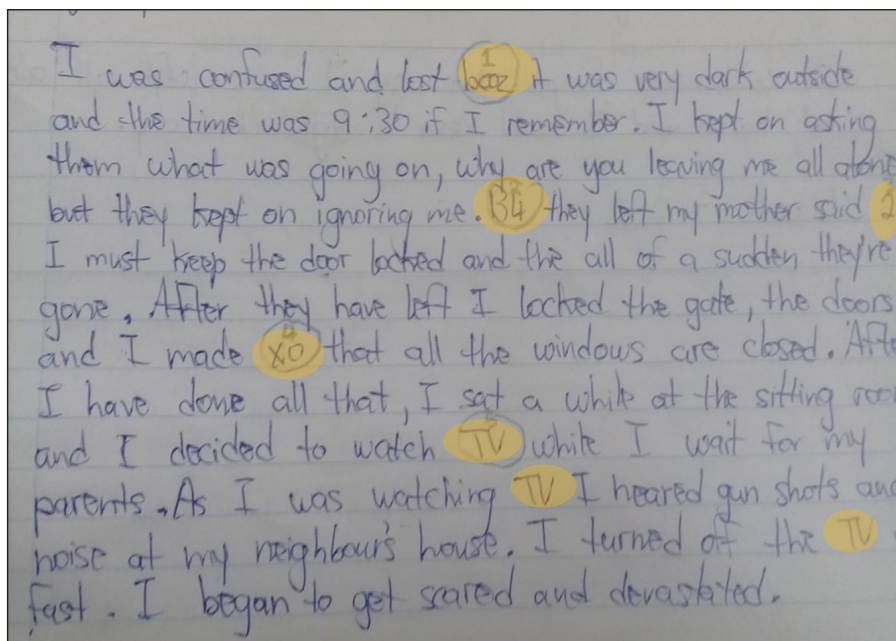 I was confused and lost bcoz it was very dark outside
and the time was 9:30 if I remember. I kept on asking
them what was going on, why are you leaving me all alone
but they kept on ignoring me. B4 they left my mother said 2
I must keep the door locked and the all of a sudden they're
gone. After they have left I locked the gate, the doors
and I made xo that all the windows are closed. Afte
I have done all that, I sat a while at the sitting roo
and I decided to watch TV while I wait for my
parents. As I was watching TV I heared gun shots and
noise at my neighbour's house. I turned off the TV
fast. I began to get scared and devastated.